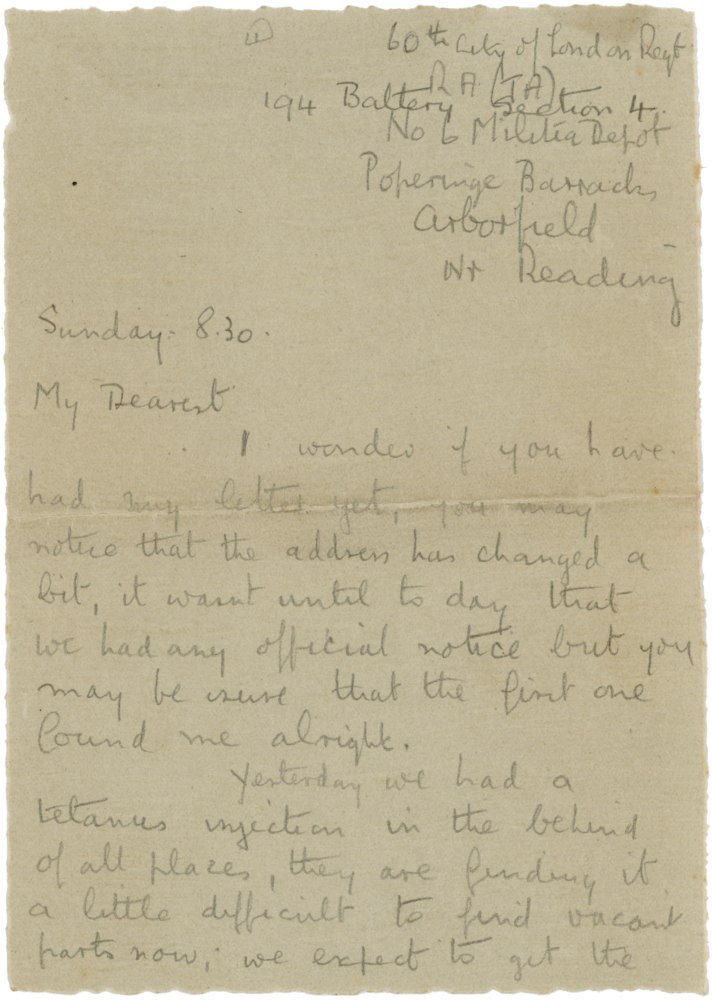 (1)
60th City of London Regt
RA (TA)
194 Battery Section 4.
No 6 Militia Depot
Poperinge Barracks,
Arborfield
Nr Reading
Sunday. 8.30.
My Dearest
I wonder if you have
had my letter yet, you may
notice that the address has changed a
bit, it wasnt until to day that
we had any official notice but you
may be usure that the first one
found me alright.
Yesterday we had a
tetanus injection in the behind
of all places, they are finding it
a little difficult to find vacant
parts now, we expect to get the